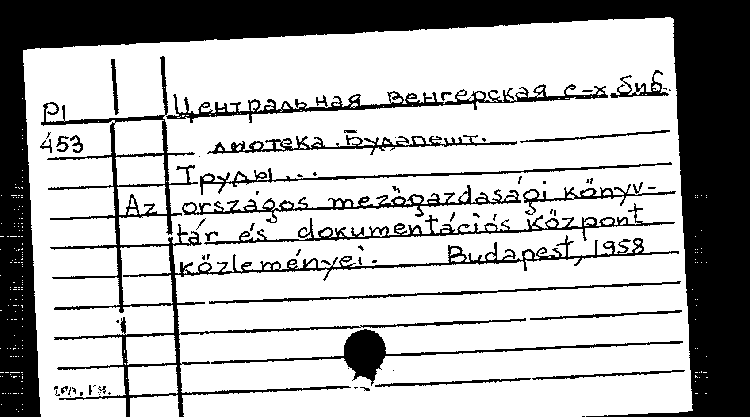 Р1 Центральная венгерская с-х биб
453 лиотека. Будапешт.
Труды...
Az országos mezőgazdasági könyv-
tár és dokumentációs központ
közleményei. Budapest, 1958